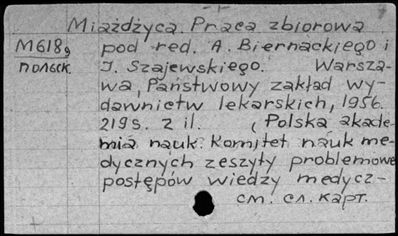 Miażdżyca. Praca zbiorowa
М618₉ pod red. A. Biernackiego i
польск. J. Szajewskiego. Warsza-
wa, Państwowy zakład wy-
dawnictw lekarskich, 1956.
219 s. z il. (Polska akade-
mia nauk. Komitet nauk me-
dycznych zeszyty problemowe
postępów wiedzy medycz-
см. сл. карт.